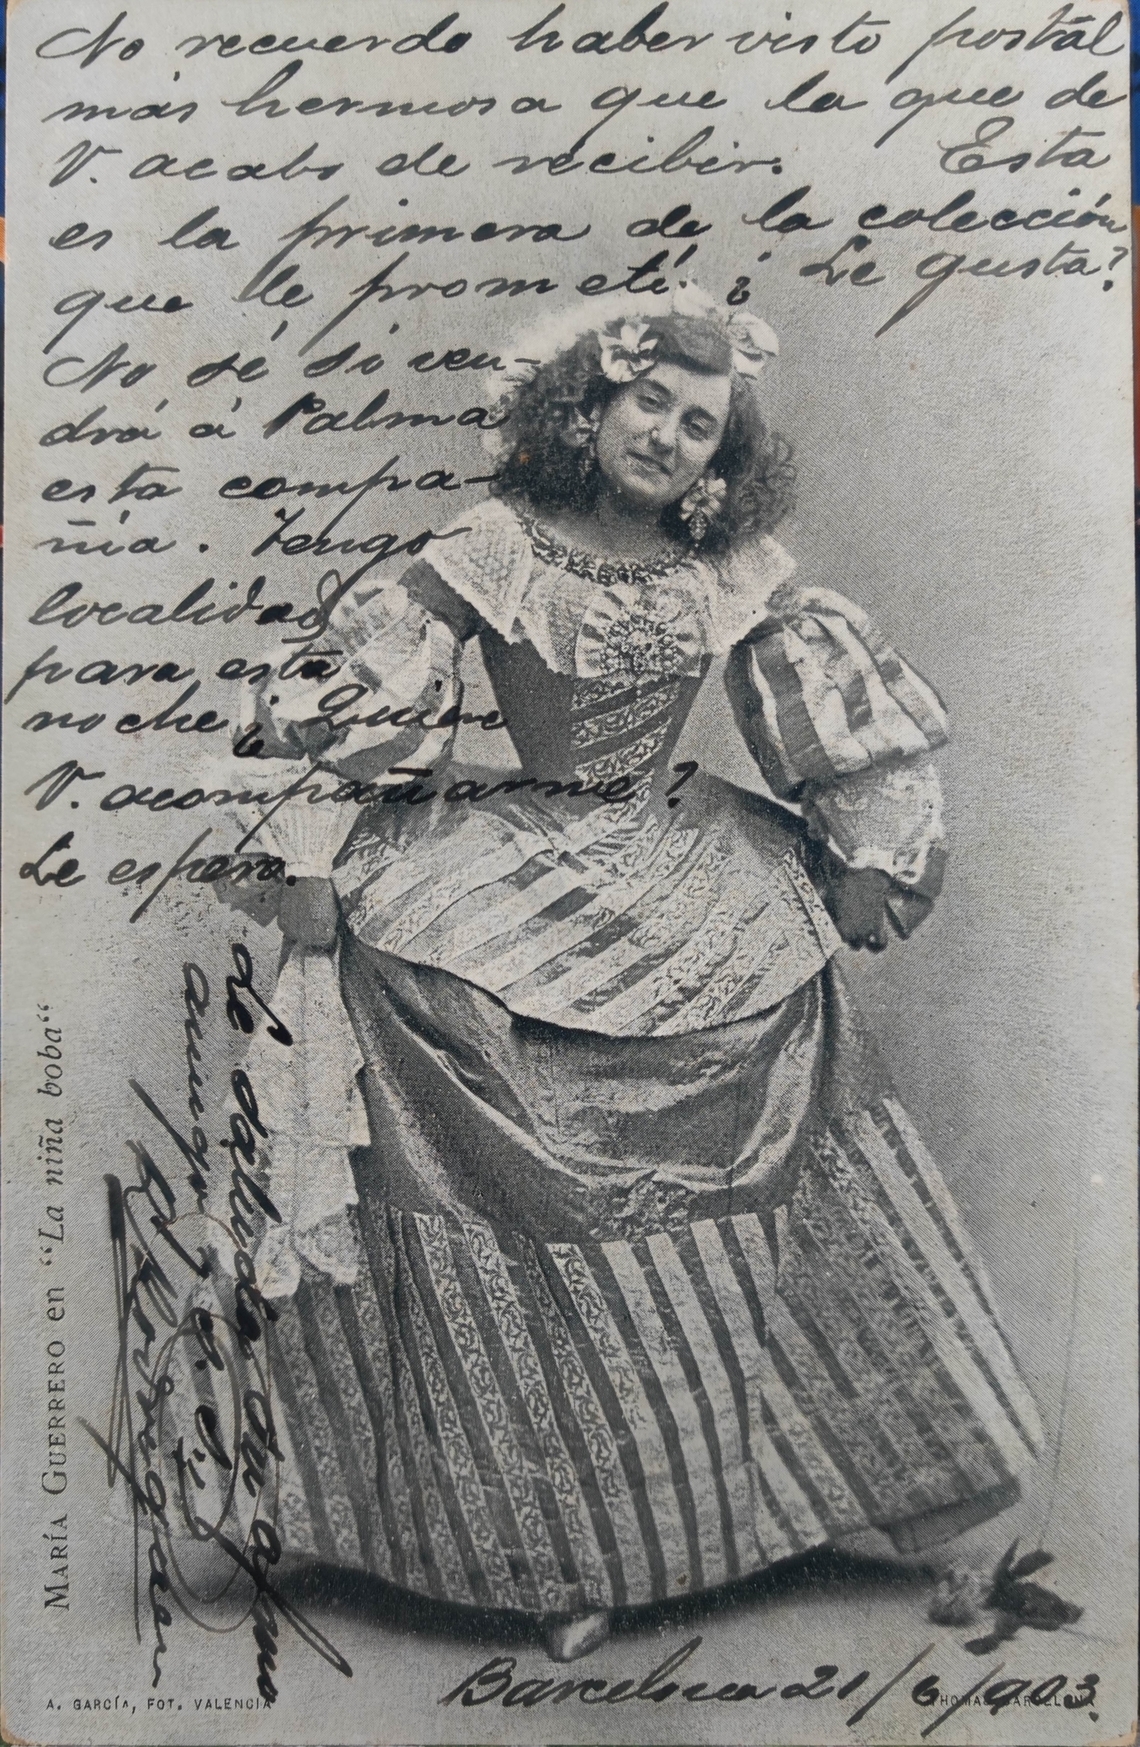 No recuerdo haber visto postal
más hermosa que la que de
V. acabo de recibir. Esta
es la primera de la colección
que le prometí. ¿Le gusta?
No sé si ven-
drá á Palma
esta compa-
ñía. Tengo
localidad
para esta
noche ¿Quiere
V. acompañarme?
Le espero.
Le saluda su afmo
amigo y
Barcelona 21/6/903.
MARÍA GUERRERO en “La niña boba“
A. GARCÍA, FOT. VALENCIA
THOMAS BARCELONA